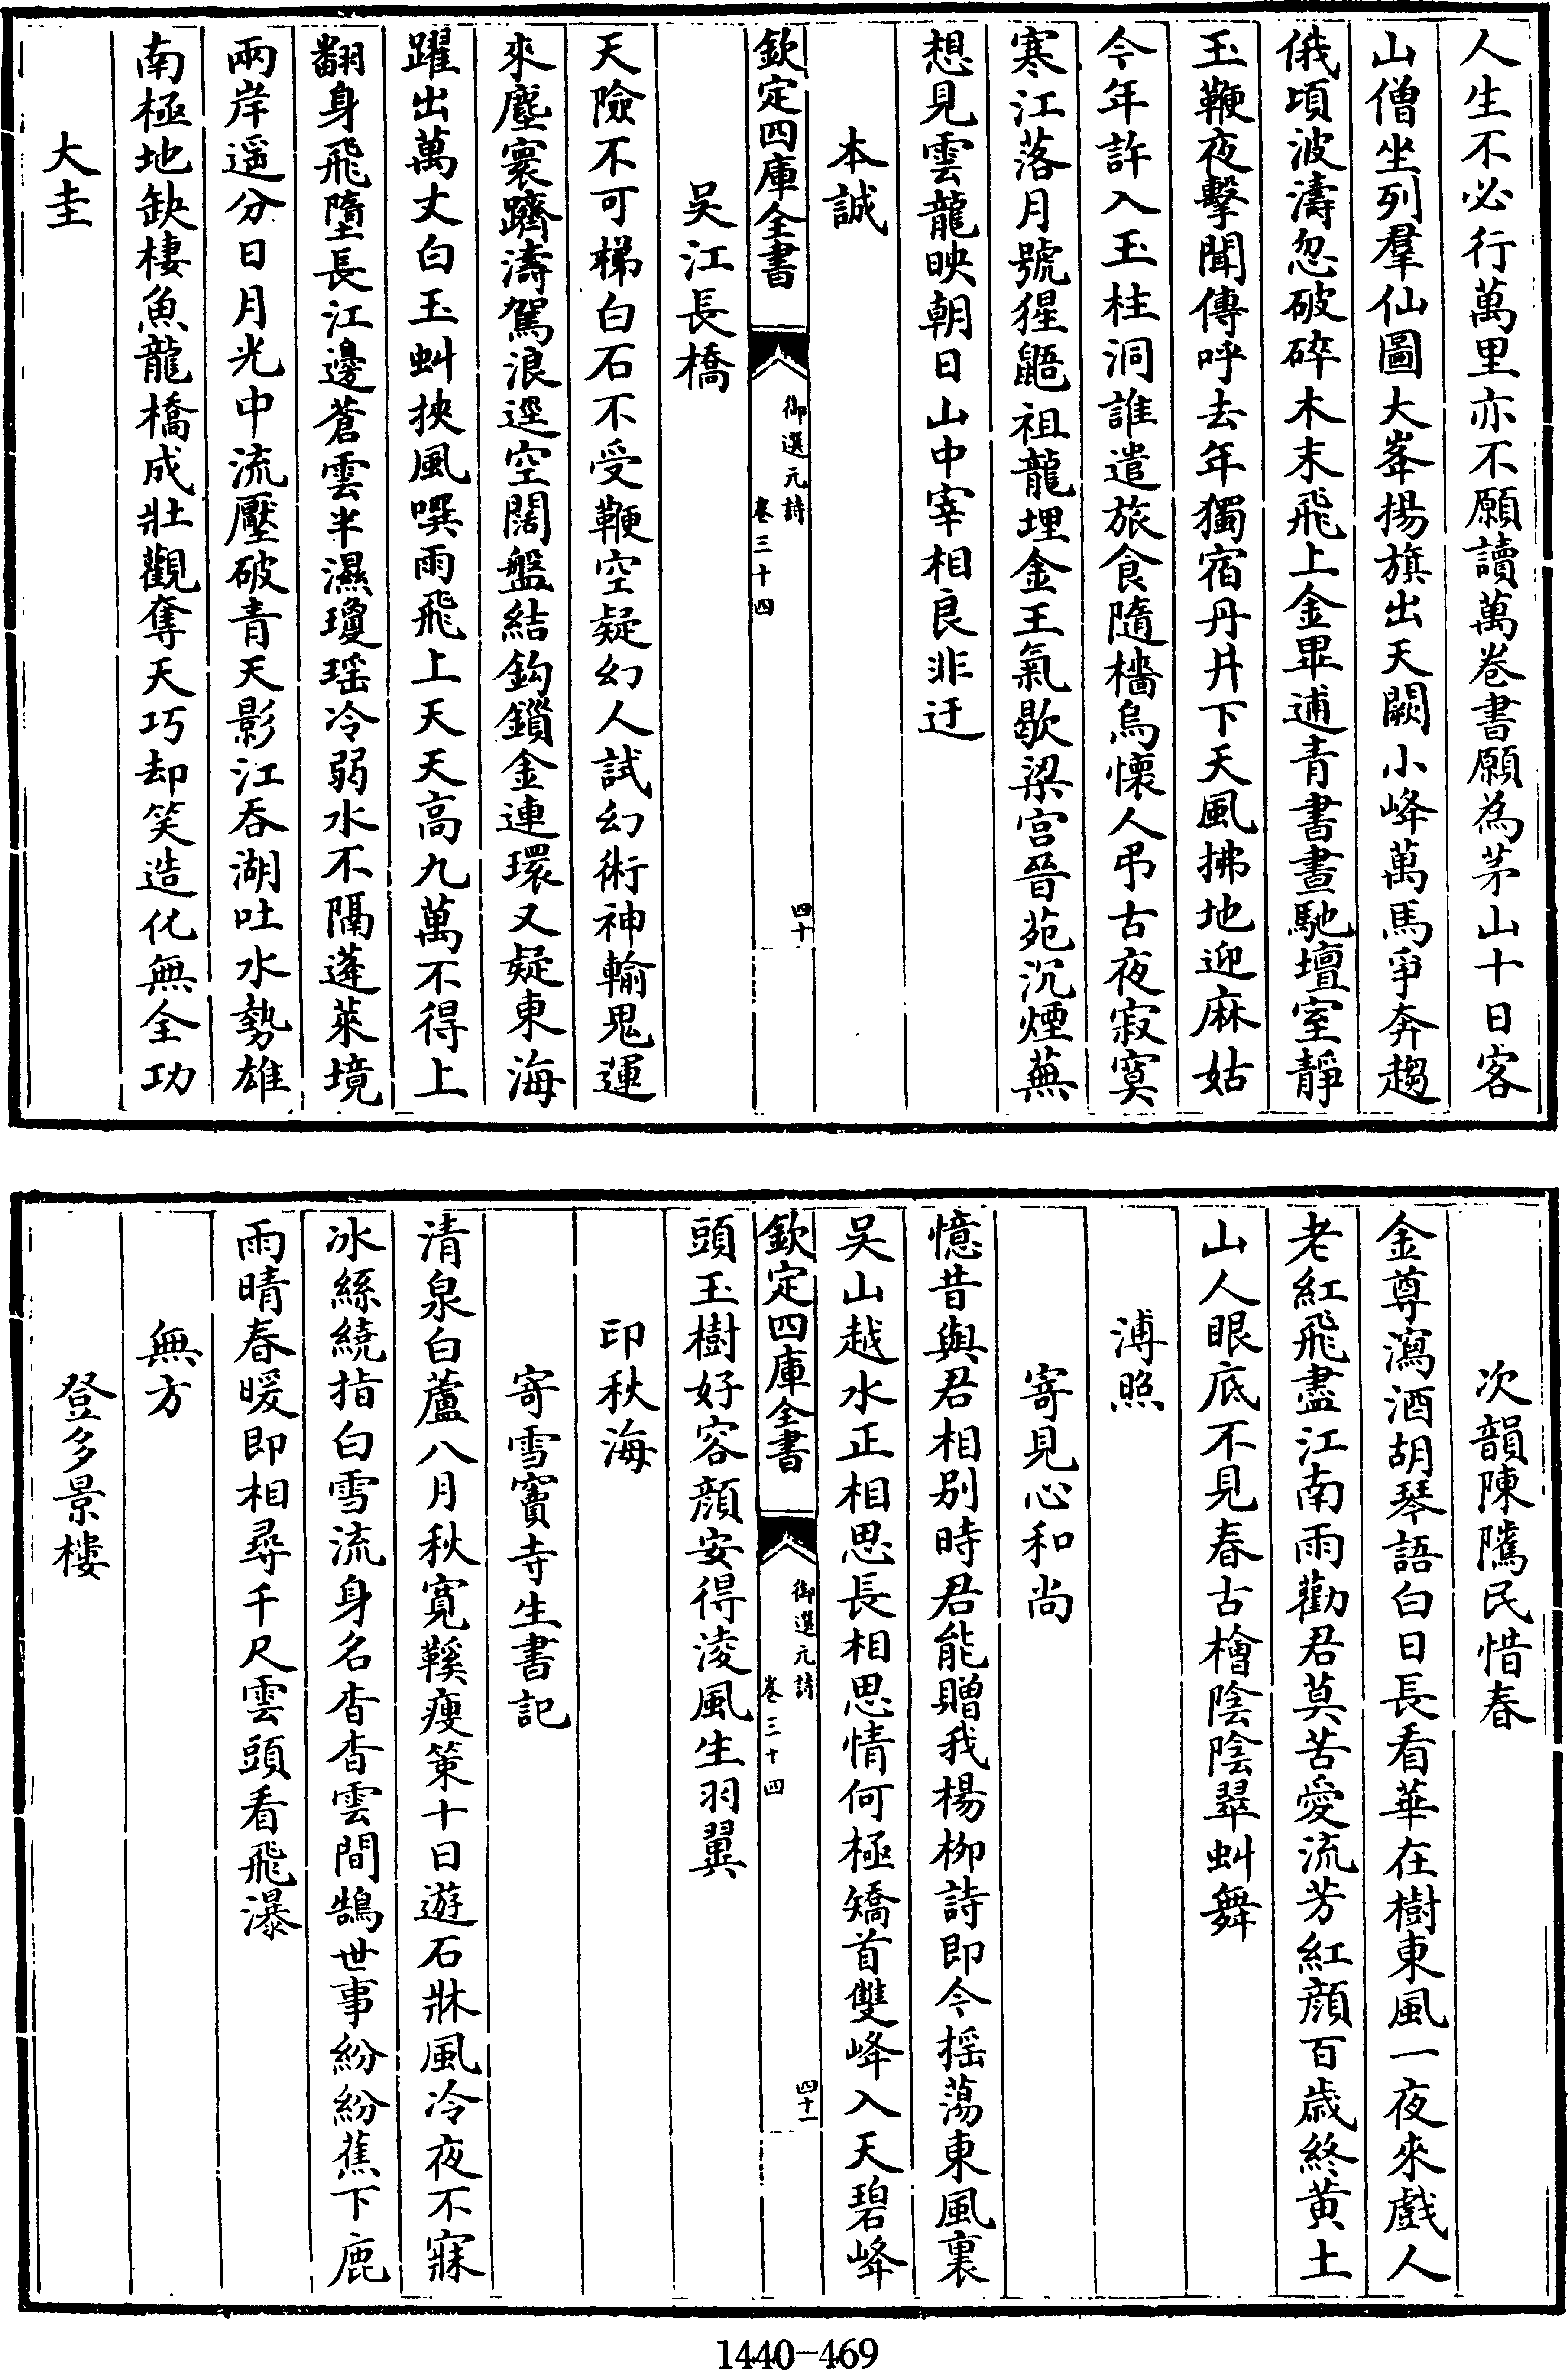 人生不必行萬里亦不願讀萬卷書願為茅山十日客
山僧坐列羣仙圖大峯揚旗出天闕小峰萬馬爭奔趨
俄頃波濤忽破碎木末飛上金畢逋青書晝馳壇室靜
玉鞭夜擊聞傳呼去年獨宿丹井下天風拂地迎麻姑
今年許入玉柱洞誰遣旅食隨檣烏懷人弔古夜寂寞
寒江落月號猩鼯祖龍埋金王氣歇梁宫晉苑沉煙蕪
想見雲龍映朝日山中宰相良非迂
本誠
欽定四庫全書
御選元詩
卷三十四
四十
吳江長橋
天險不可梯白石不受鞭空疑幻人試幻術神輸鬼運
來塵寰躋濤駕浪逕空闊盤結鈎鎖金連環又疑東海
躍出萬丈白玉虯挾風噀雨飛上天天高九萬不得上
翻身飛墮長江邊蒼雲半濕瓊瑶冷弱水不隔蓬萊境
兩岸遥分日月光中流壓破青天影江吞湖吐水勢雄
南極地缺棲魚龍橋成壯觀奪天巧却笑造化無全功
大圭
次韻陳隲民惜春
金尊瀉酒胡琴語白日長看華在樹東風一夜來戲人
老紅飛盡江南雨勸君莫苦愛流芳紅顔百歲終黄土
山人眼底不見春古檜陰陰翠虯舞
溥照
寄見心和尚
憶昔與君相别時君能贈我楊柳詩即今摇蕩東風裏
吳山越水正相思長相思情何極矯首雙峰入天碧峰
欽定四庫全書
御選元詩
卷三十四
四十一
頭玉樹好容顔安得淩風生羽翼
印秋海
寄雪竇寺生書記
清泉白蘆八月秋寬鞵瘦策十日遊石牀風冷夜不寐
冰絲繞指白雪流身名杳杳雲間鵠世事紛紛蕉下鹿
雨晴春暖即相尋千尺雲頭看飛瀑
無方
登多景樓
1440-469